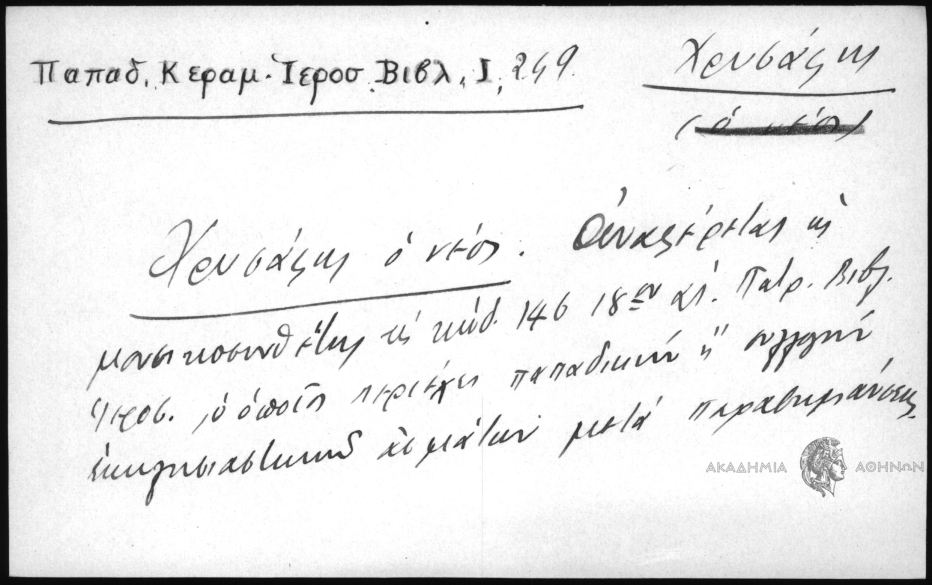 Παπαδ. Κεραμ. Ἱεροσ. Βιβλ. Ι, 249.
Χρυσάφης
(ὁ νέος)
Χρυσάφης ὁ νέος. Ἀναφέρεται ὡς
μουσικοσυνθέτης εἰς κώδ. 146 18ου αἰ. Πατρ. Βιβλ.
Ἱεροσ., ὁ ὁποῖος περιέχει παπαδικήν ἤ συλλογήν
ἐκκλησιαστικῶν ᾀσμάτων μετά παρασημάνσεως.
ΑΚΑΔΗΜΙΑ ΑΘΗΝΩΝ